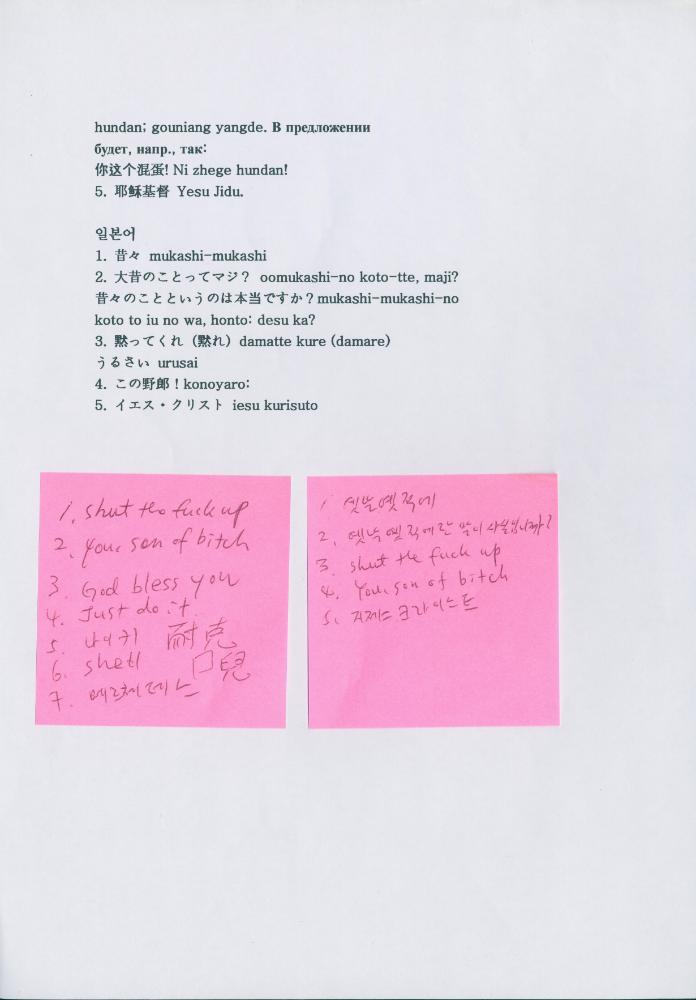 hundan; gouniang yangde. В предложении
будет, напр., так:
你这个混蛋! Ni zhege hundan!
5. 耶稣基督 Yesu Jidu.
일본어
1. 昔々 mukashi-mukashi
2. 大昔のことってマジ？ oomukashi-no koto-tte, maji?
昔々のことというのは本当ですか？mukashi-mukashi-no
koto to iu no wa, honto: desu ka?
3. 黙ってくれ（黙れ）damatte kure (damare)
うるさい urusai
4. この野郎！konoyaro:
5. イエス・クリスト iesu kurisuto
1. shut the fuck up
2. you. son of bitch
3. God bless you
4. Just do it.
5. 나이키 耐克
6. shell 口兒
7. 메르체데스
1. 옛날옛적에
2. 옛날 옛적에란 말이 사실입니까?
3. shut the fuck up
4. You. son of bitch
5. 지제스 크라이스트